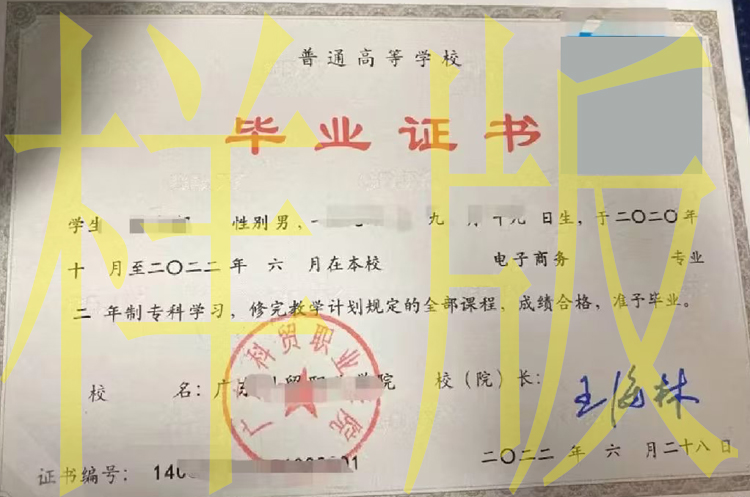 样版
普通高等学校
毕业证书
学生 性别男, 九 月十九日生,于二〇二〇年
十 月至二〇二二年 六 月在本校 电子商务 专业
二 年制专科学习,修完教学计划规定的全部课程,成绩合格,准予毕业。
科贸职业 院
校 名:广 贸职 学院 校(院)长: 王海林
二〇二二 年 六 月二十八日
证书编号: 140